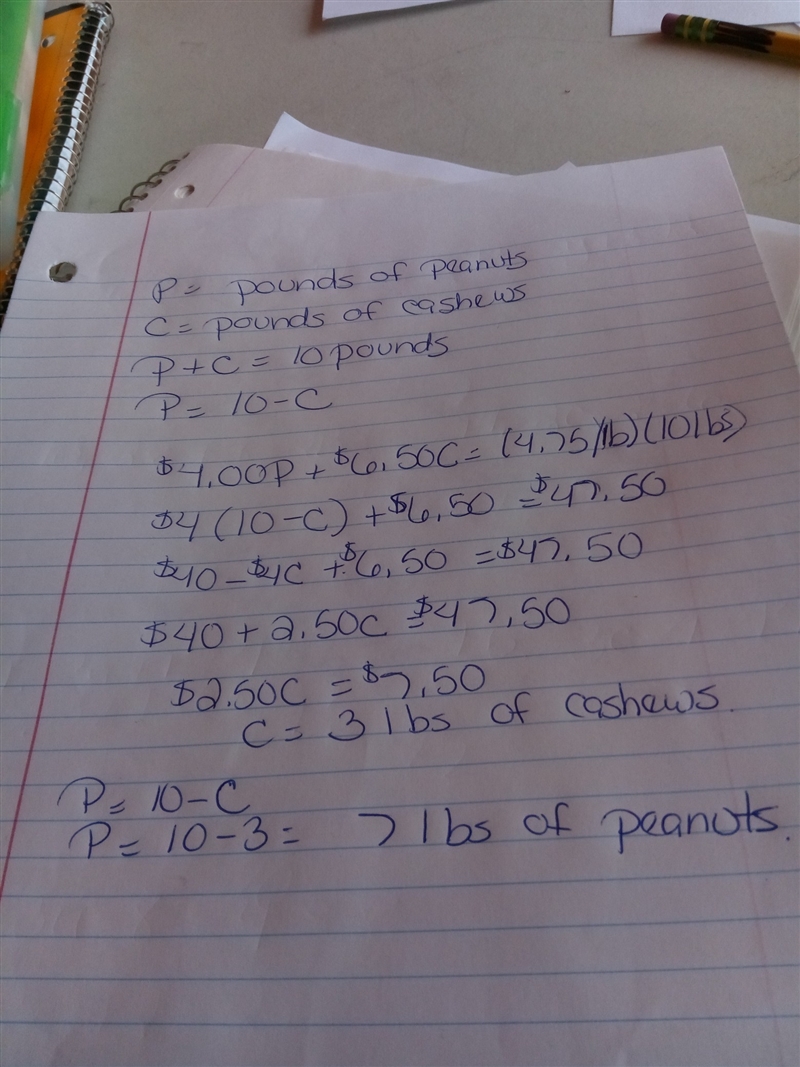 P = pounds of peanuts
C = pounds of cashews
P + C = 10 pounds
P = 10 - C
$4.00P + $6.50C = (4.75/lb)(10lbs)
$4(10 - C) + $6.50 = $47.50
$40 - $4C + $6.50 = $47.50
$40 + 2.50C = $47.50
$2.50C = $7.50
C = 3 lbs of cashews.
P = 10 - C
P = 10 - 3 = 7 lbs of peanuts.